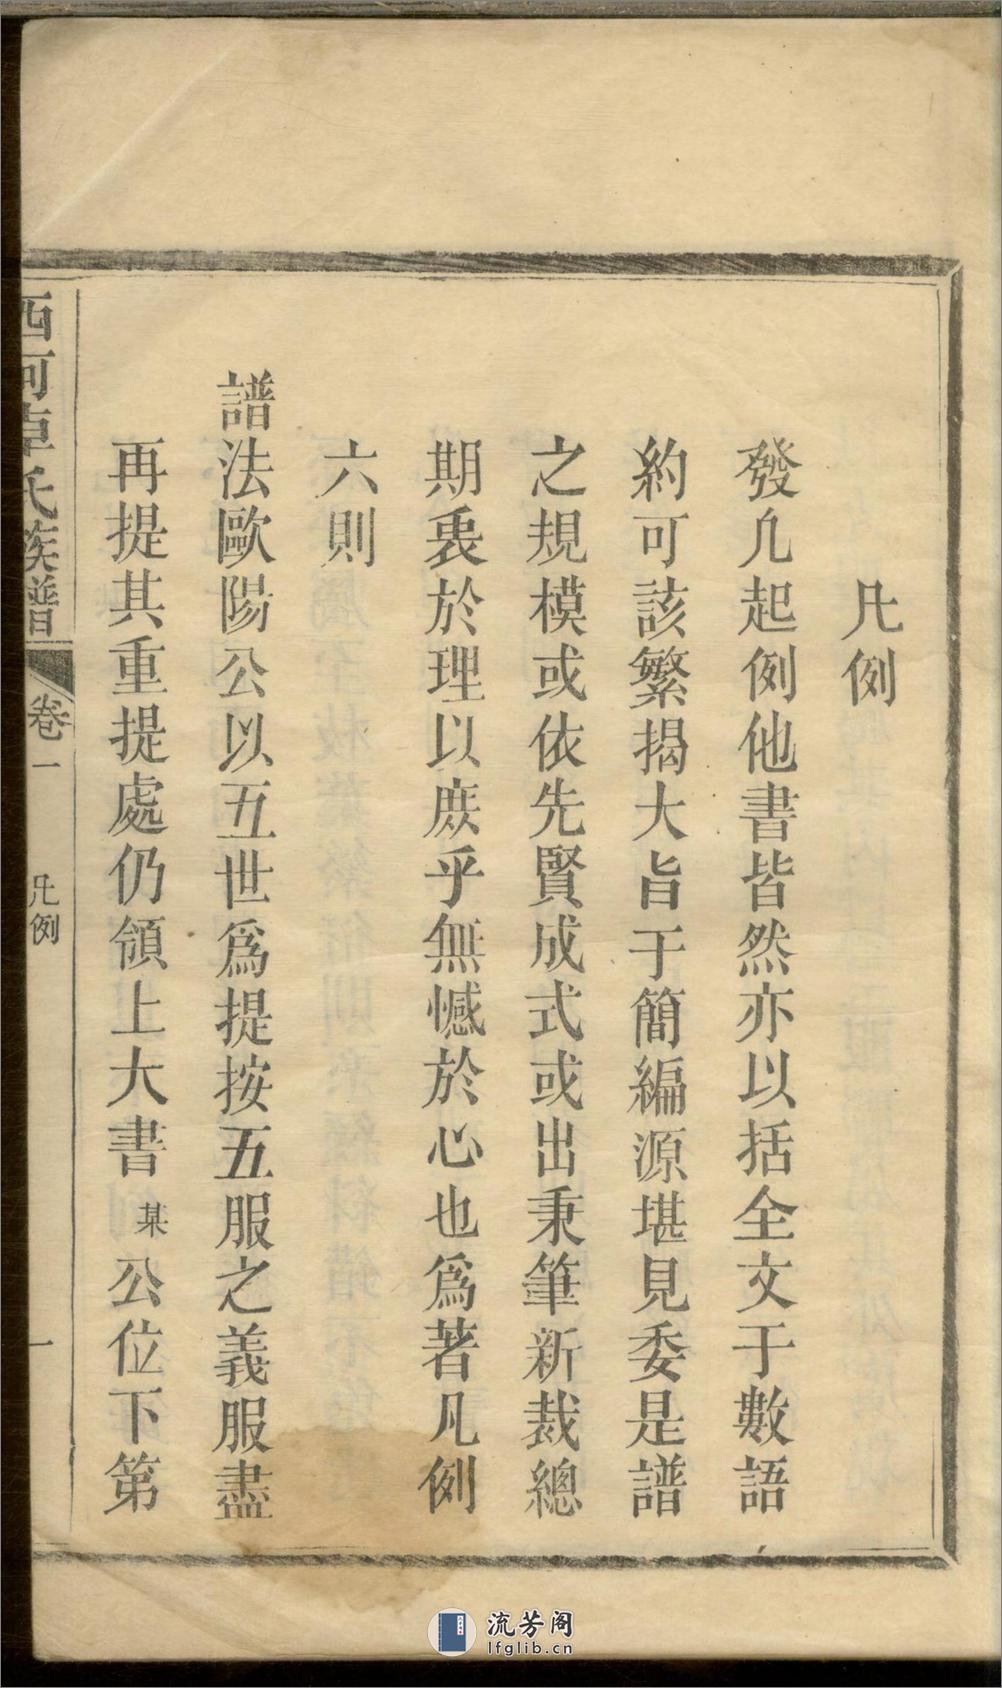 凡例
發凡起例他書皆然亦以括全文于數語
約可該繁揭大旨于簡編源堪見委是譜
之規模或依先賢成式或出秉筆新裁總
期衷於理以庶乎無憾於心也爲著凡例
六則
譜法歐陽公以五世爲提按五服之義服盡
再提其重提處仍領上大書某公位下第
西河卓氏族譜 卷一 凡例 一
流芳阁
lfglib.cn